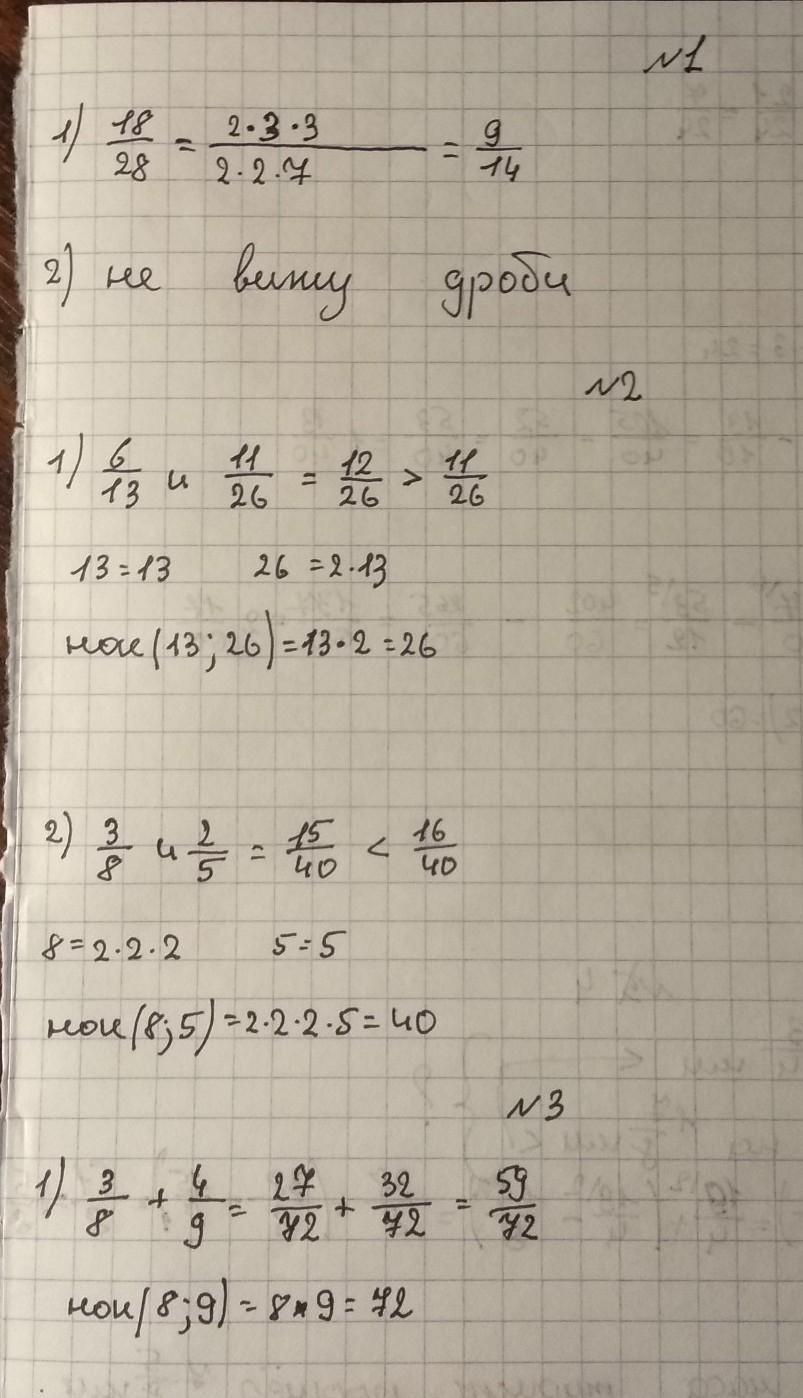 №1
1) 18/28 = 2·3·3/2·2·7 = 9/14
2) не вижу дроби
№2
1) 6/13 и 11/26 = 12/26 > 11/26
13=13 26=2·13
нок(13;26)=13·2=26
2) 3/8 и 2/5 = 15/40 < 16/40
8=2·2·2 5=5
нок(8;5)=2·2·2·5=40
№3
1) 3/8 + 4/9 = 27/72 + 32/72 = 59/72
нок(8;9)=8·9=72